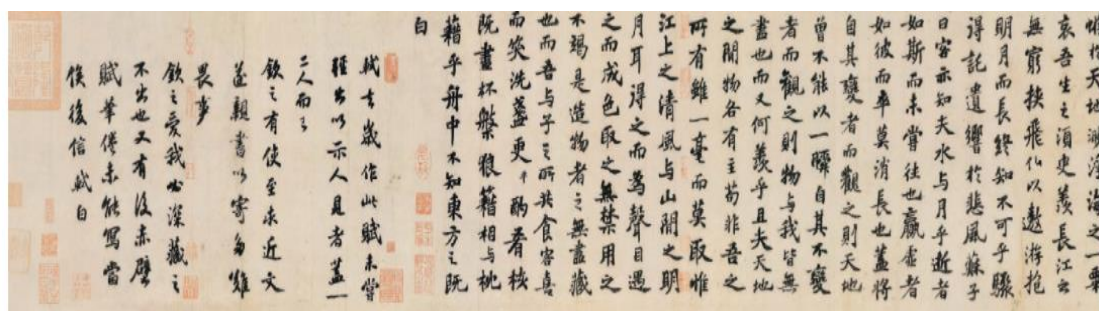 於天地渺滄海之一粟
哀吾生之須臾羨長江之
無窮挾飛仙以遨游抱
明月而長終知不可乎驟
得託遺響於悲風蘇子
曰客亦知夫水與月乎逝者
如斯而未嘗往也贏虛者
如彼而卒莫消長也蓋將
自其變者而觀之則天地
曾不能以一瞬自其不變
者而觀之則物與我皆無
盡也而又何羨乎且夫天地
之間物各有主苟非吾之
所有雖一毫而莫取惟
江上之清風與山間之明
月耳得之而為聲目遇
之而成色取之無禁用之
不竭是造物者之無盡藏
也而吾與子之所共食客喜
而笑洗盞更酌肴核
既盡杯槃狼籍相與枕
籍乎舟中不知東方之既
白
軾去歲作此賦未嘗
輕出以示人見者蓋一
二人而已
欽之有使至求近文
遂親書以寄多難
畏事
欽之愛我必深藏之
不出也又有後赤壁
賦筆倦未能寫當
俟後信軾白